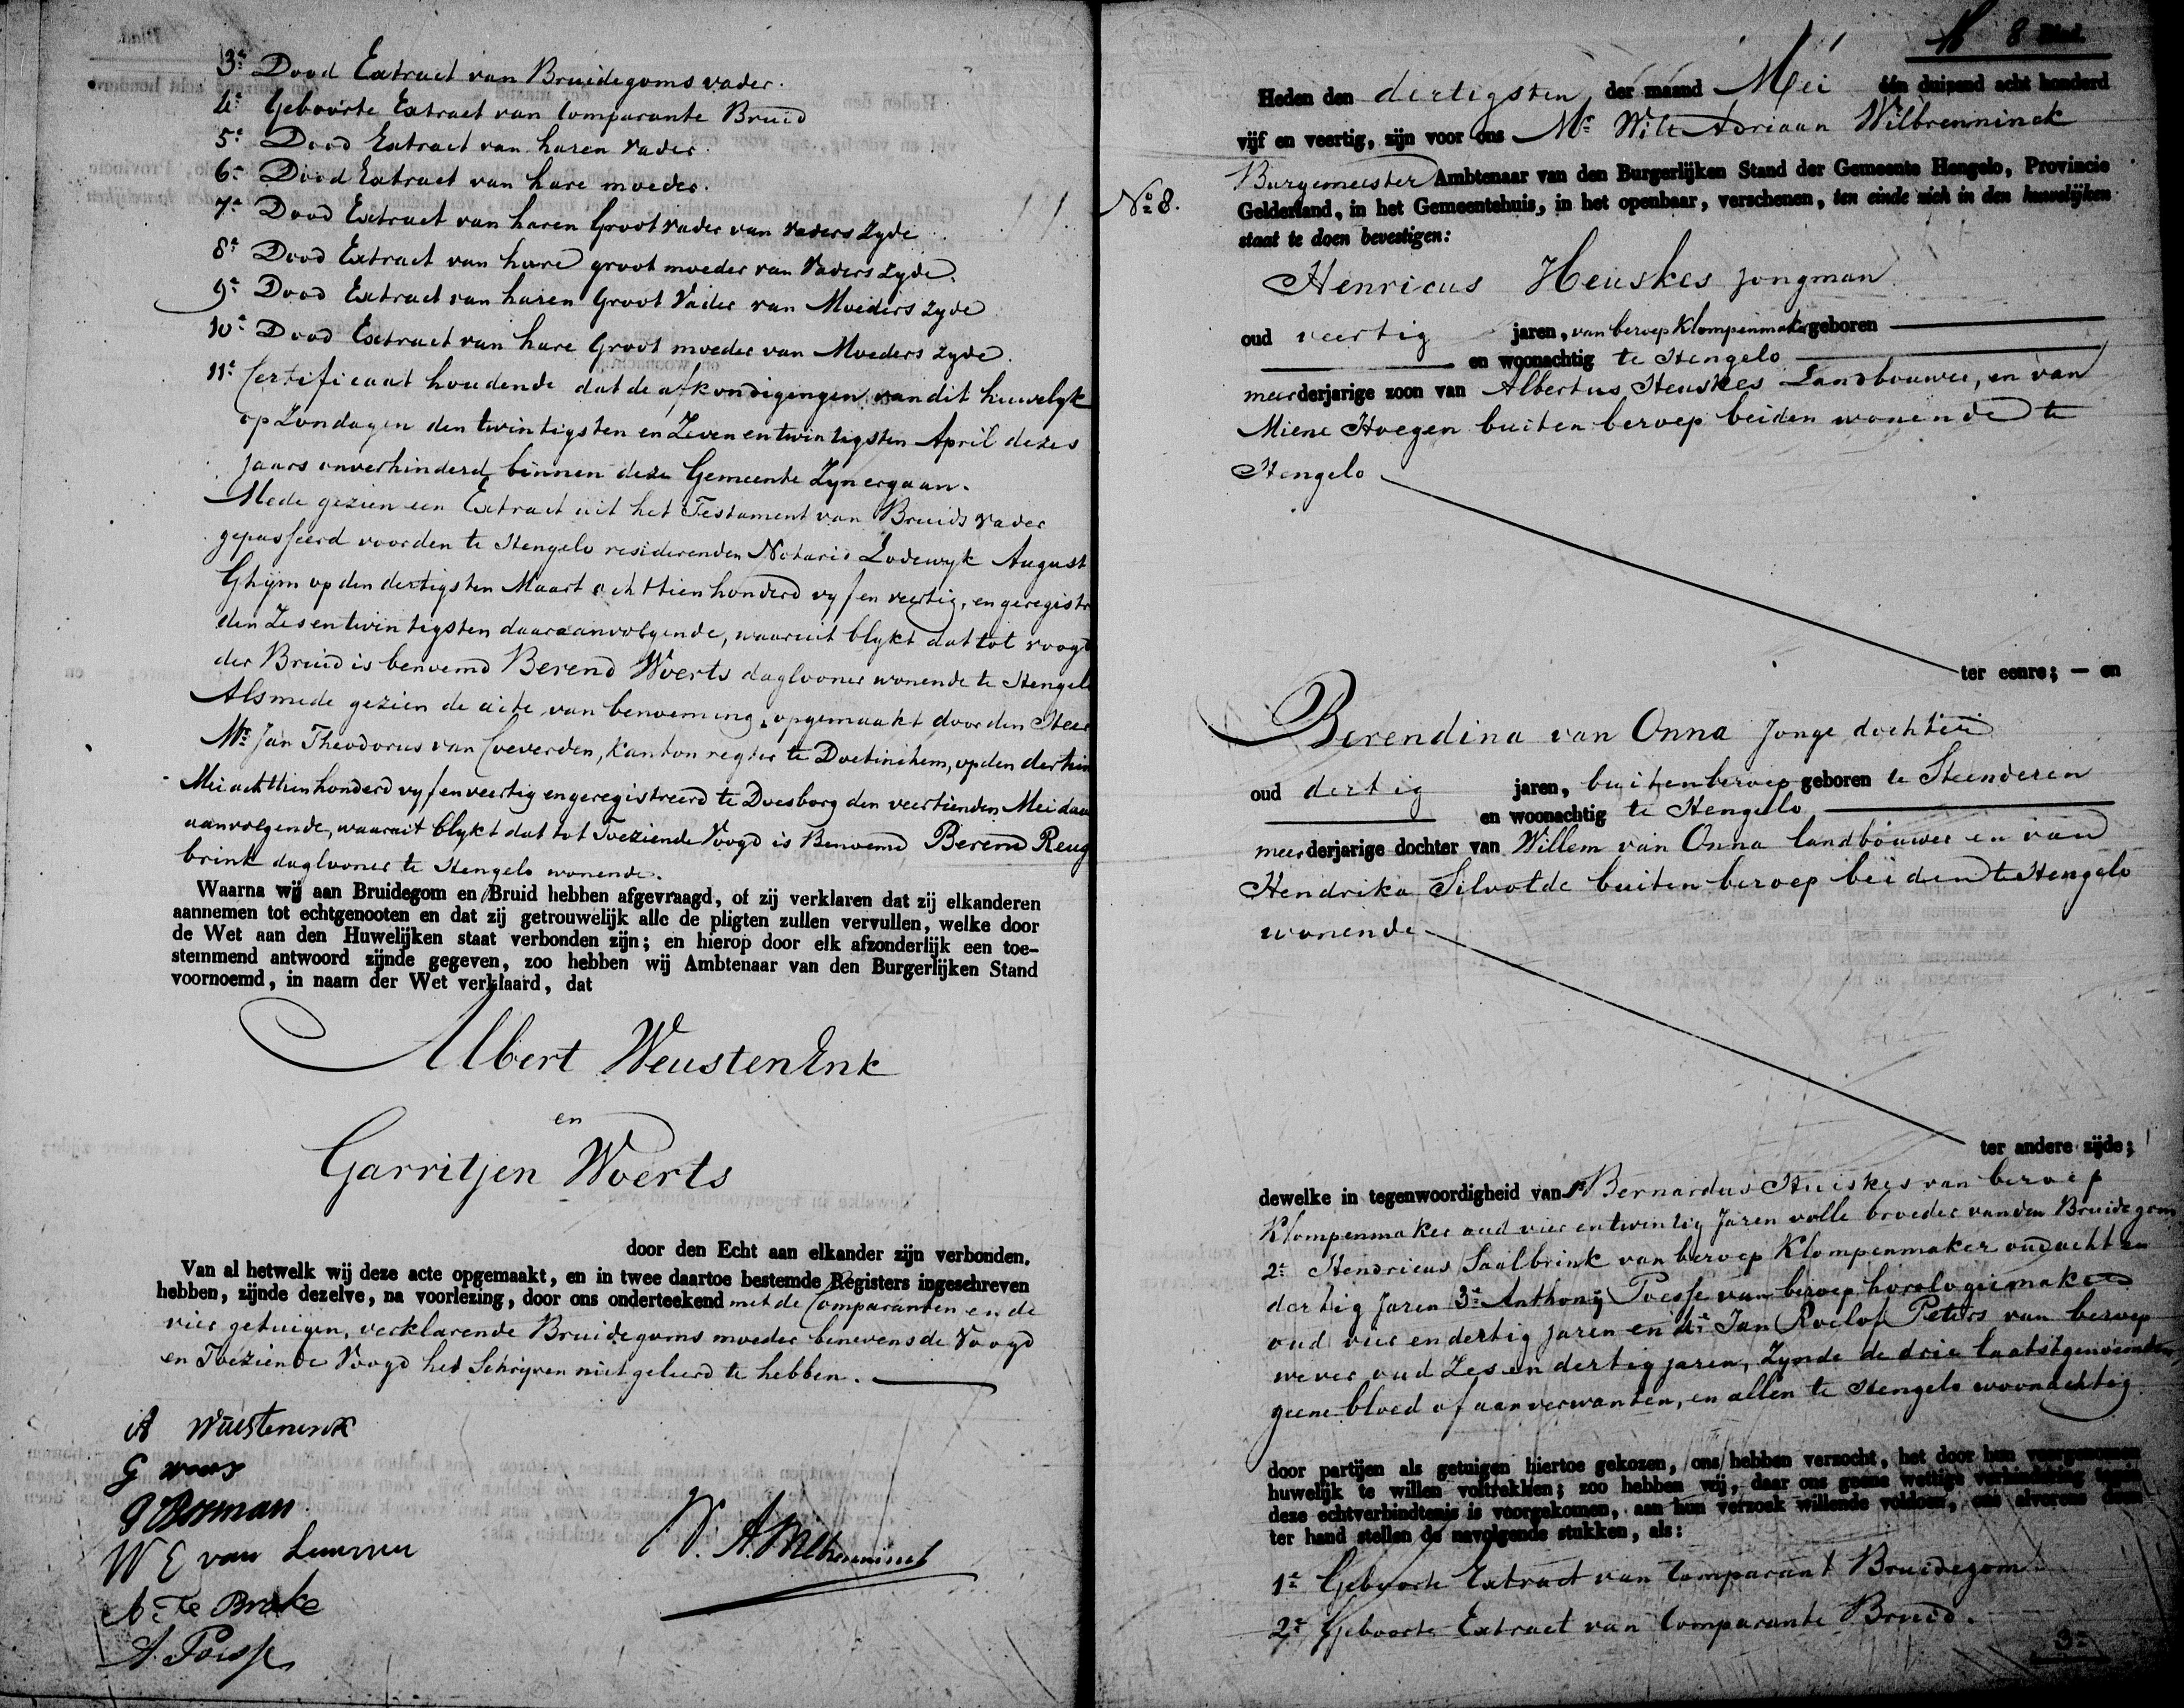 3e Dood Extract van Bruidegoms vader.
4e Geboorte Extract van Comparante Bruid
5e Dood Extract van haren Vader.
6e Dood Extract van hare moeder.
7e Dood Extract van haren Grootvader van Vaders Zyde
8e Dood Extract van hare grootmoeder van Vaders Zyde.
9e Dood Extract van haren Groot Vader van Moeders Zyde
10e Dood Extract van hare Groot moeder van Moeders Zyde.
11e Certificaat houdende dat de afkondigingen van dit huwelyk
op Zondagen den twintigsten en Zevenentwintigsten April dezes
jaars onverhinderd binnen deze Gemeente Zyn ergaan.
Mede gezien een Extract uit het Testament van Bruids vader
gepasseerd voor den te Hengelo residerenden Notaris Lodewyk August
Ghijm op den dertigsten Maart achttien honderd vyf en veertig, en geregistr
den Zesentwintigsten daaraanvolgende, waaruit blykt dat tot voogd
der Bruid is benoemd Berend Woerts daglooner wonende te Hengelo
Alsmede gezien de acte van benoeming, opgemaakt door den Heer
Mr. Jan Theodorus van Coeverden, kanton regter te Doetinchem, op den dertien
Mei achttienhonderd vyfenveertig en geregistreerd te Doesborg den veertienden Mei daar
aanvolgende, waaruit blykt dat tot Toeziende Voogd is Benoemd Berend Reug
brink daglooner te Hengelo wonende.
Waarna wij aan Bruidegom en Bruid hebben afgevraagd, of zij verklaren dat zij elkanderen
aannemen tot echtgenooten en dat zij getrouwelijk alle de pligten zullen vervullen, welke door
de Wet aan den Huwelijken staat verbonden zijn; en hierop door elk afzonderlijk een toe-
stemmend antwoord zijnde gegeven, zoo hebben wij Ambtenaar van den Burgerlijken Stand
voornoemd, in naam der Wet verklaard, dat
Albert WeustenEnk
en
Garritjen Woerts
door den Echt aan elkander zijn verbonden.
Van al hetwelk wij deze acte opgemaakt, en in twee daartoe bestemde Registers ingeschreven
hebben, zijnde dezelve, na voorlezing, door ons onderteekend met de Comparanten en de
vier getuigen, verklarende Bruidegoms moeder benevens de Voogd
en Toeziende Voogd het Schrijven niet geleerd te hebben.
A Wuestenenk
G
Bosman
W E van
A: Te Broke
A. Poesse
W. A. Wilbrenninck
8 Blad.
Heden den dertigsten der maand Mei één duizend acht honderd
vijf en veertig, zijn voor ons Mr. Wilt Adriaan Wilbrenninck
Burgemeester Ambtenaar van den Burgerlijken Stand der Gemeente Hengelo, Provincie
No. 8.
Gelderland, in het Gemeentehuis, in het openbaar, verschenen, ten einde zich in den huwelijken
staat te doen bevestigen:
Henricus Heuskes jongman
oud veertig jaren, van beroep Klompenmaker geboren
en woonachtig te Hengelo
meerderjarige zoon van Albertus Heuskes Landbouwer, en van
Miene Hoegen buiten beroep beiden wonende te
Hengelo
ter eenre; — en
Berendina van Onna Jonge dochter
oud dertig jaren, buiten beroep geboren te Steenderen
en woonachtig te Hengelo
meerderjarige dochter van Willem van Onna landbouwer en van
Hendrika Silvolde buiten beroep beiden te Hengelo
wonende
ter andere zijde;
dewelke in tegenwoordigheid van Bernardus Huiskes van beroep
Klompenmaker oud vier en twintig Jaren volle broeder van den Bruidegom
2e Hendricus Saalbrink van beroep Klompenmaker oud acht en
dertig Jaren 3e Anthonij Poesse van beroep horologiemaker
oud vier en dertig jaren en 4e Jan Roelof Peters van beroep
wever oud Zes en dertig jaren, Zynde de drie laatstgenoemden
geene bloed of aanverwanten, en allen te Hengelo woonachtig
door partijen als getuigen hiertoe gekozen, ons hebben verzocht, het door hen voorgenomen
huwelijk te willen voltrekken; zoo hebben wij, daar ons geene wettige verhindering tegen
deze echtverbindtenis is voorgekomen, aan hun verzoek willende voldoen, ons alvorens doen
ter hand stellen de navolgende stukken, als:
1e Geboorte Extract van Comparant Bruidegom
2e Geboorte Extract van Comparante Bruid.
3e